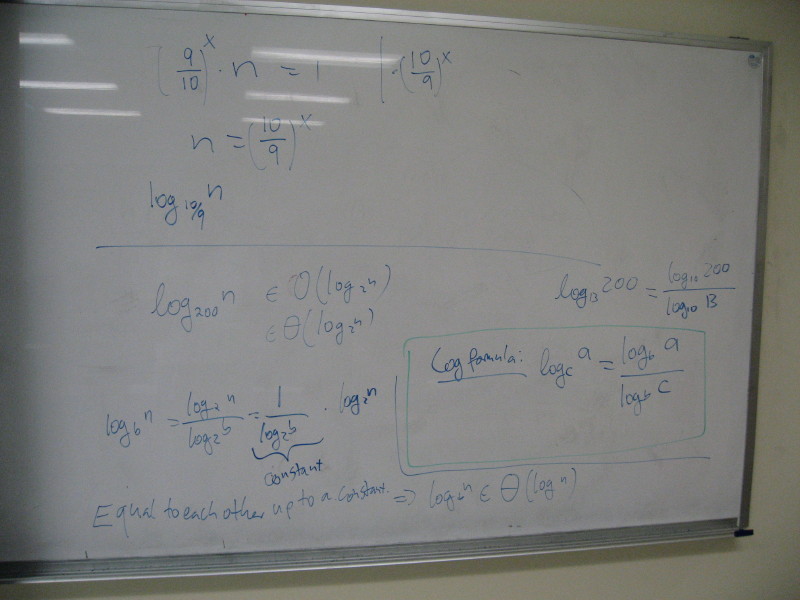 (9/10)^x · n = 1 | · (10/9)^x
n = (10/9)^x
log_10/9 n
log_200 n ∈ O(log_2 n)
∈ Θ(log_2 n)
log_13 200 = log_10 200 / log_10 13
Log formula: log_c a = log_b a / log_b c
log_b n = log_2 n / log_2 b = 1 / log_2 b · log_2 n
constant
Equal to each other up to a constant. => log_b n ∈ Θ(log n)